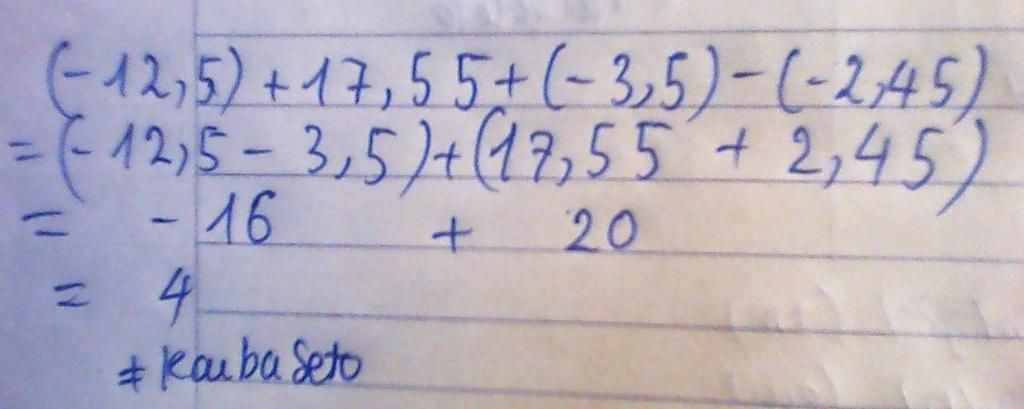 (-12,5) + 17,55 + (-3,5) - (-2,45)
= (-12,5 - 3,5) + (17,55 + 2,45)
= - 16 + 20
= 4
# KaitobaSeto